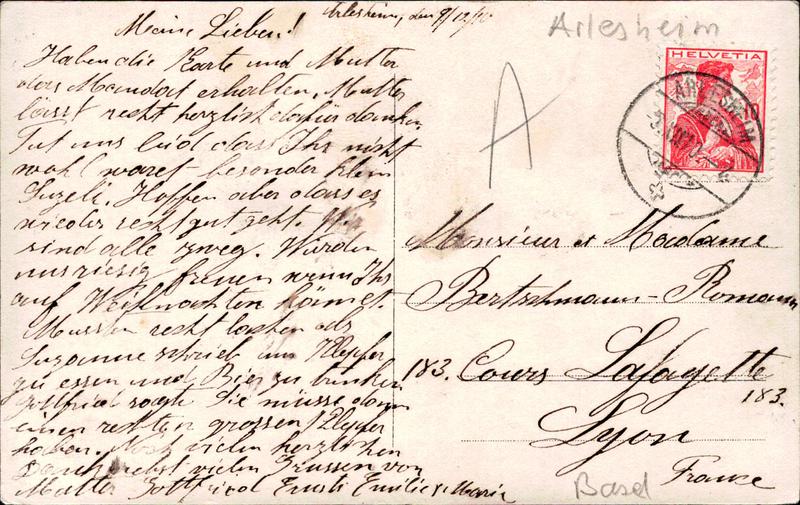 Arlesheim, den 9/12/10
Arlesheim
HELVETIA
ARLESHEIM
A
Meine Lieben!
Haben die Karte und Mutter
das Mandat erhalten. Mutter
lässt recht herzlich dafür danken.
Tut uns leid dass Ihr nicht
wohl waret besonder klein
Suzeli. Hoffen aber dass es
wieder recht gut geht. Wir
sind alle zweg. Würden
uns riesig freuen wenn Ihr
auf Weihnachten kämet.
Mussten recht lachen als
Suzanne schrieb um Klepfer
zu essen und Bier zu trinken
Gottfried sagte Sie müsse dann
einen rechten grossen Klepfer
haben. Noch vielen herzlichen
Dank nebst vielen Grüssen von
Mutter Gottfried Ernst Emilie & Marie
Monsieur et Madame
Bertschmann-Romann
183. Cours Lafayette
183.
Lyon
France
Basel